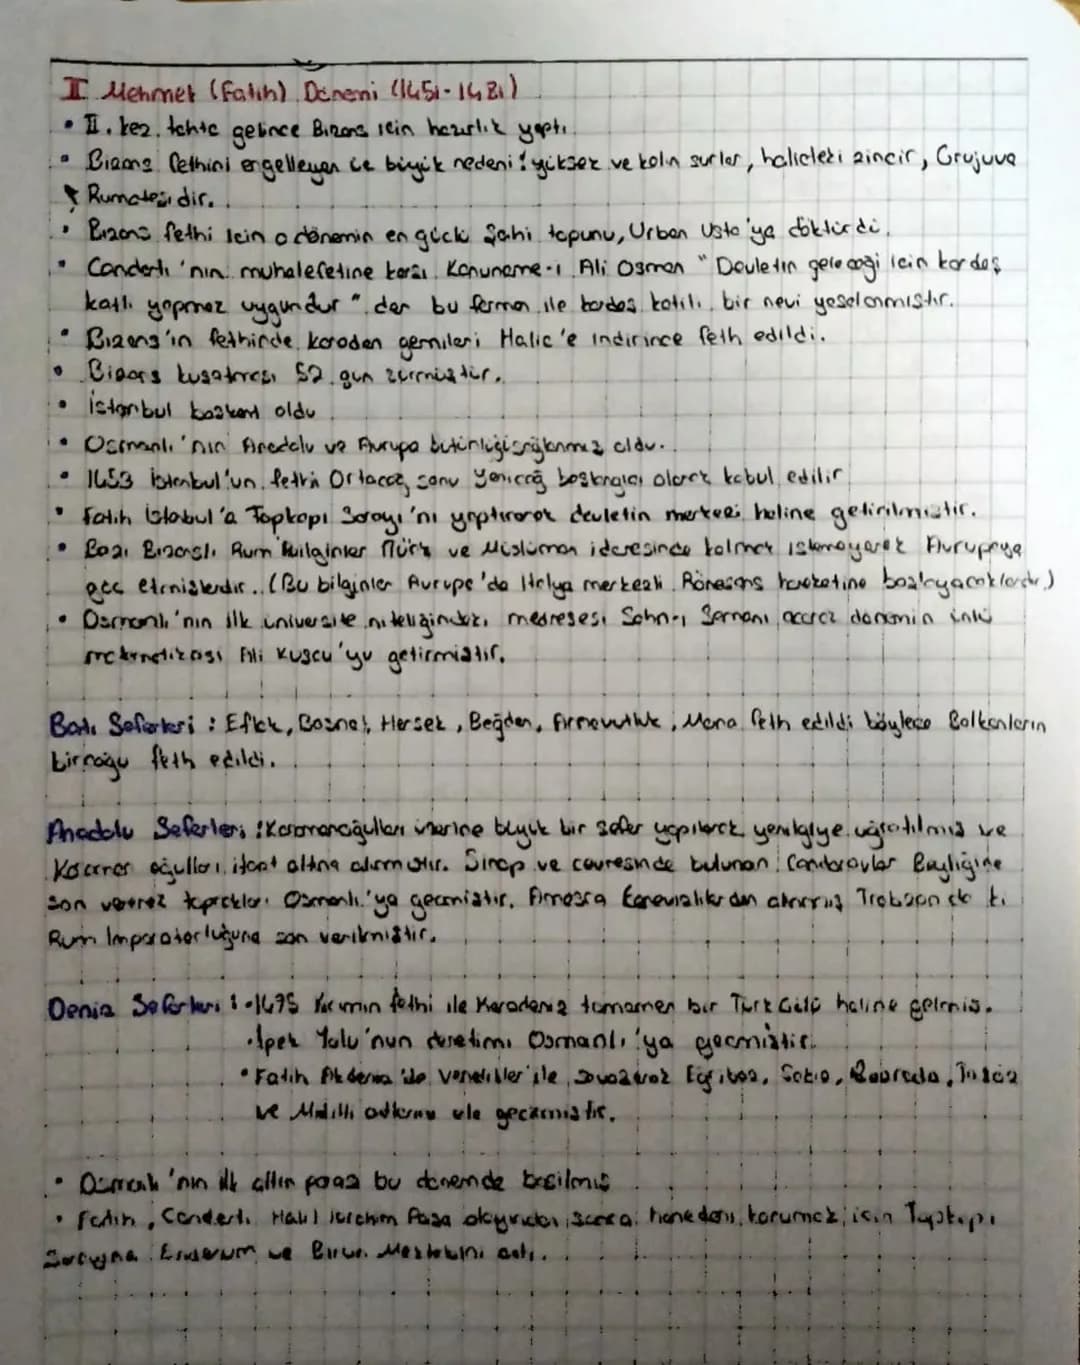 II Mehmet (Fatih) Dönemi (1451-1481)
• II. kez. tahta gelince Bizans için hazırlık yaptı.
• Bizans fethini engelleyen üç büyük nedeni: yüksek ve kalın surlar, haliçteki zincir, Grujuva
Rumateşidir.
• Bizans fethi için o dönemin en güçlü Şahi topunu, Urban Usta'ya döktürdi.
• Canderlı'nın muhalefetine karşı Kanuname-i Ali Osman "Devletin geleceği için kardeş
katli yapmaz uygundur" der bu ferman ile kardeş katili bir nevi yasalanmıştır.
• Bizans'ın fethinde karadan gemileri Halic'e indirince feth edildi.
• Bizans kuşatması 52 gün sürmüştür.
• İstanbul başkent oldu
• Osmanlı'nın Anadolu ve Avrupa bütünlüğü sağlanmış oldu.
• 1453 İstanbul'un fethi Ortaçağ sonu Yeniçağ başlangıcı olarak kabul edilir
• Fatih İstabul'a Topkapı Sarayı'nı yaptırarak devletin merkezi haline getirilmiştir.
• Bazı Bizanslı Rum bilginler Türk ve Müslüman idaresinde kalmak istemeyerek Avrupaya
göç etmişlerdir.. (Bu bilginler Avrupa'da İtalya merkezli Rönesans hareketine başlayacaklardır.)
• Osmanlı'nın ilk üniversite niteliğindeki medresesi Sahn-ı Seman açarak dönemin ünlü
matematikçisi Ali Kuşcu'yu getirmiştir.
Batı Seferleri : Eflak, Bosna, Hersek, Boğdan, Arnavutluk, Mora feth edildi böylece Balkanların
birçoğu feth edildi.
Anadolu Seferleri : Karamanoğulları üzerine büyük bir sefer yapılarak yenilgiye uğratılmış ve
Karaman oğulları itaat altına alınmıştır. Sinop ve çevresinde bulunan Candaroğulları Beyliğine
son vererek toprakları Osmanlı'ya geçmiştir. Amasra Cenevizliler den alınmış Trabzon da ki
Rum İmparatorluğuna son verilmiştir.
Deniz Seferleri : •1475 Kırımın fethi ile Karadeniz tamamen bir Türk Gölü haline gelmiş.
•İpek Yolu'nun denetimi Osmanlı'ya geçmiştir.
• Fatih Akdeniz'de Venedikler'ile savaşarak Eğriboz, Taşöz
ve Midilli adlarını ele geçirmiştir.
• Osmanlı'nın ilk altın parası bu dönemde basılmış
• Fatih, Canderlı Halil İbrahim Paşa olayından sonra hanedanı korumak için Topkapı
Sarayına Enderum ve Birun Mektebini açtı.